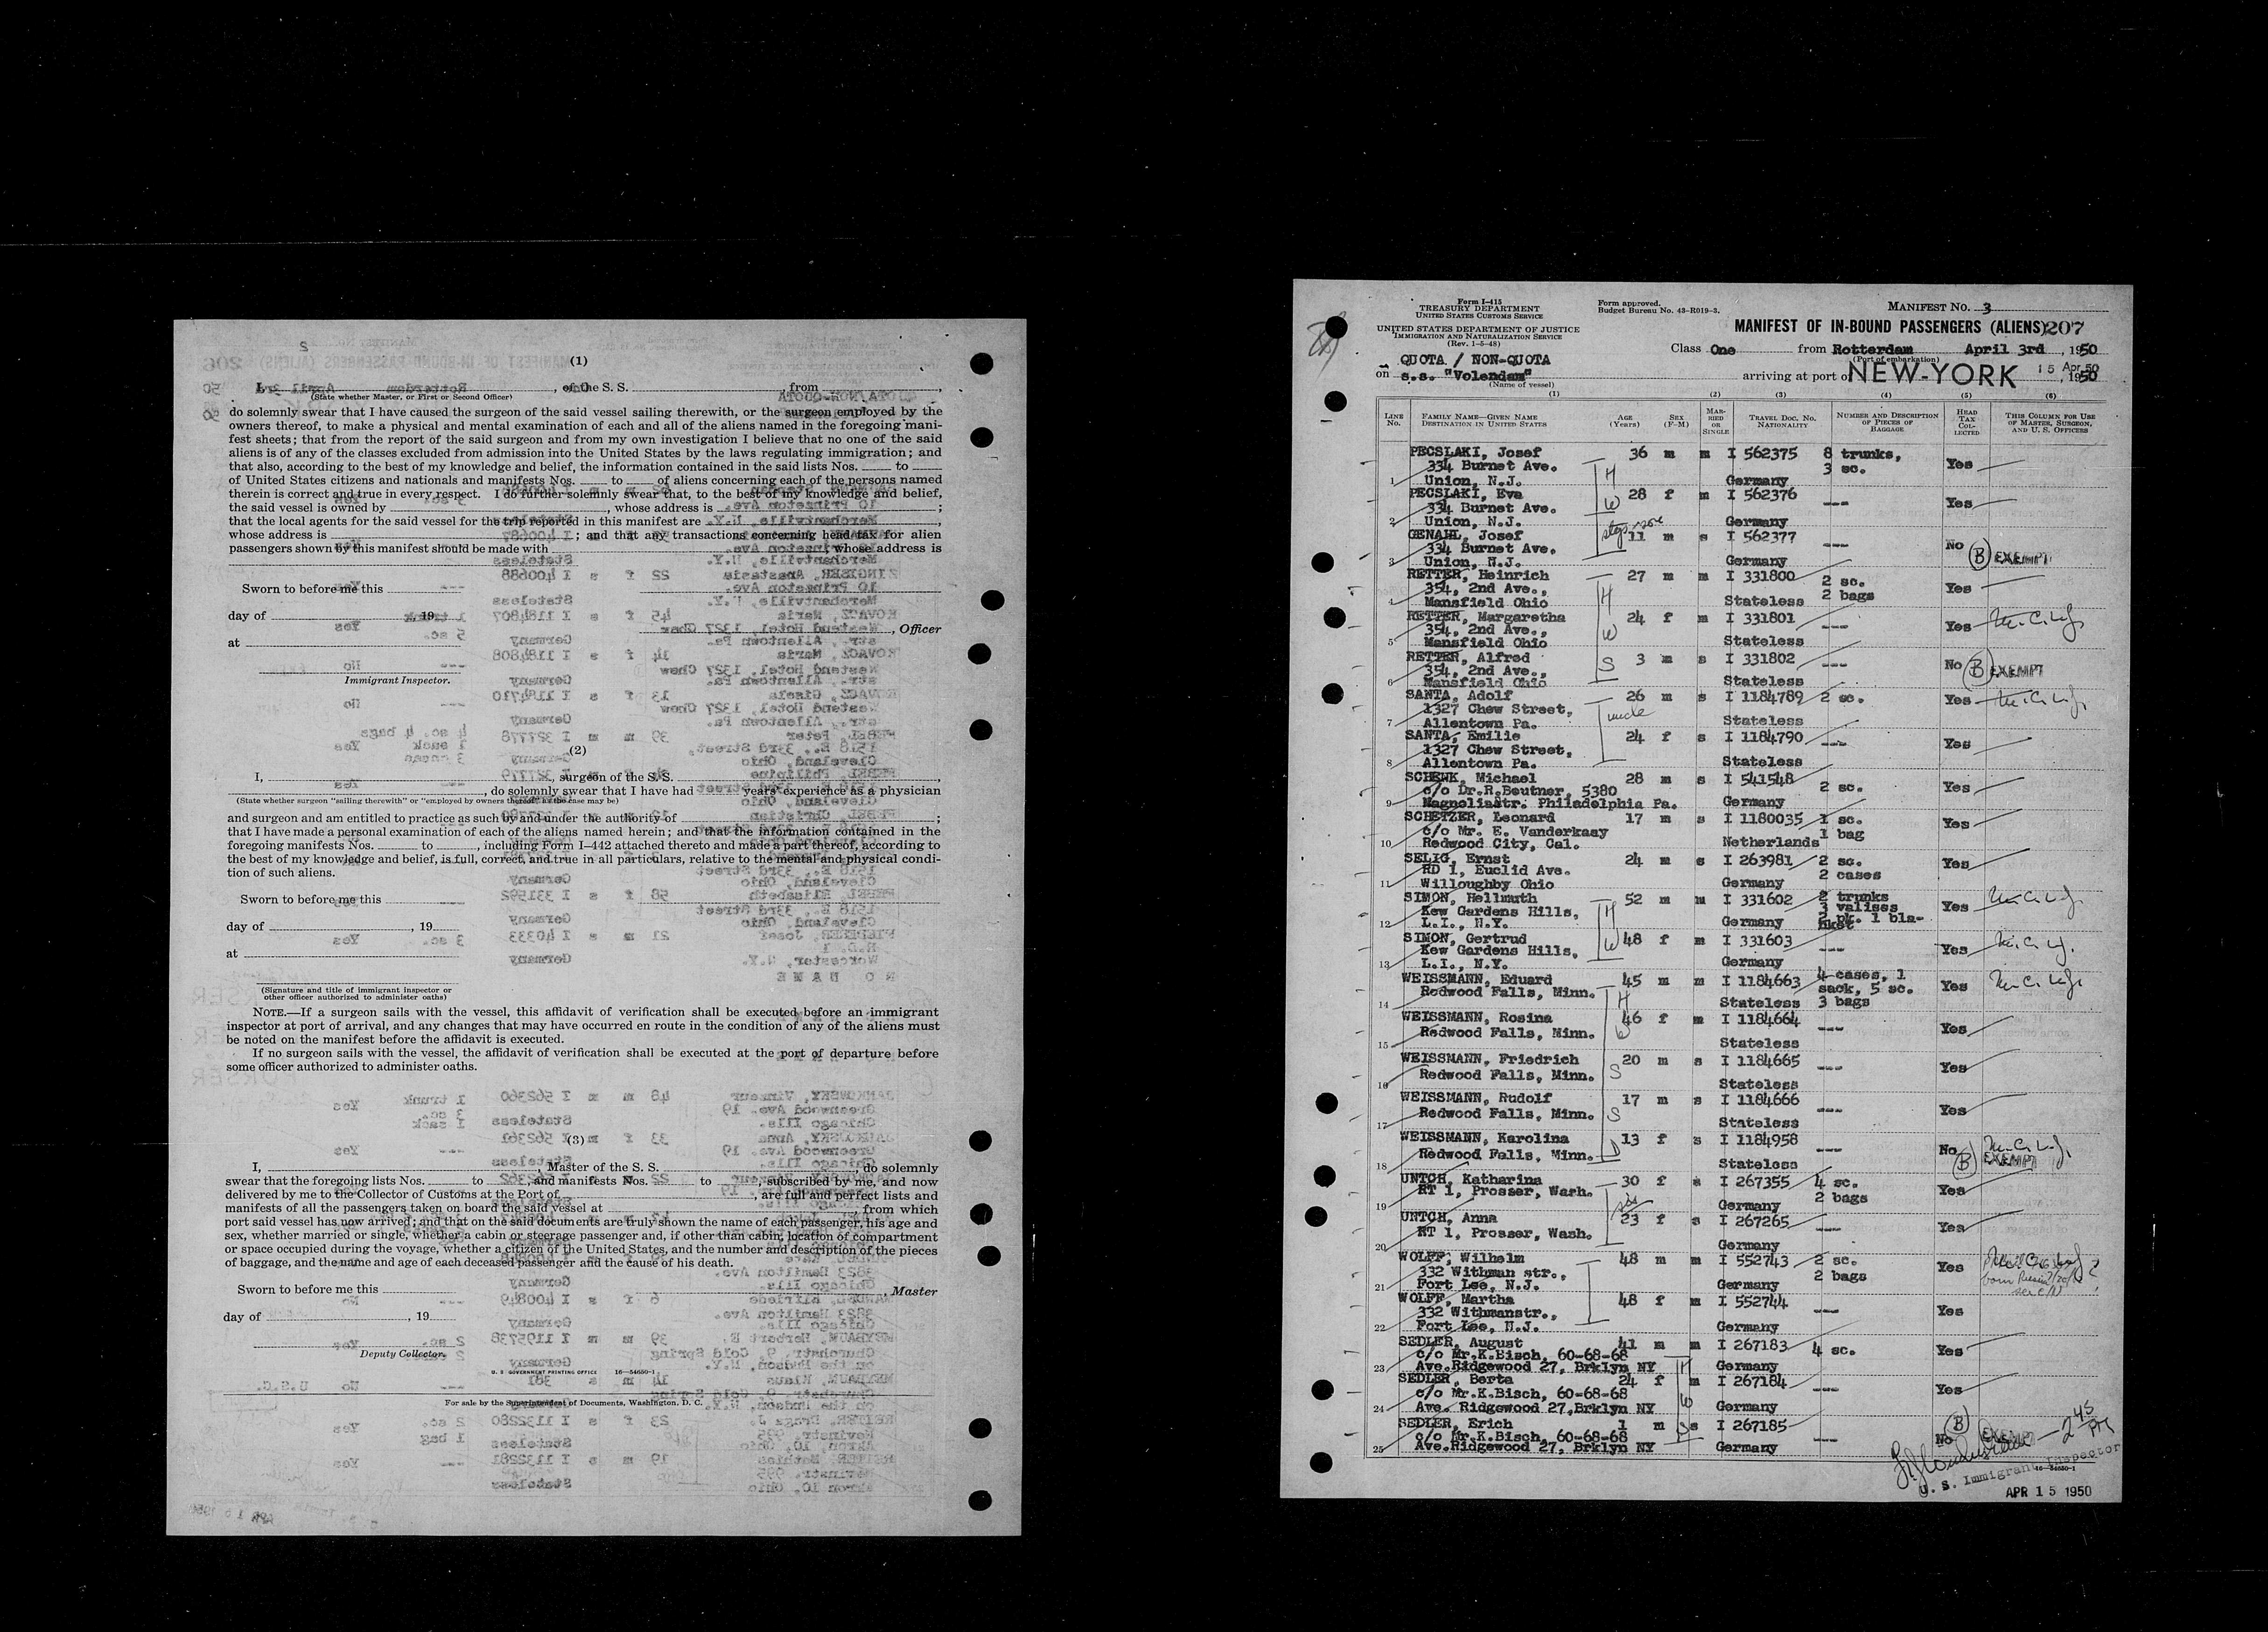 (1)
I, , of the S. S. , from ,
(State whether Master, or First or Second Officer)
do solemnly swear that I have caused the surgeon of the said vessel sailing therewith, or the surgeon employed by the
owners thereof, to make a physical and mental examination of each and all of the aliens named in the foregoing mani-
fest sheets; that from the report of the said surgeon and from my own investigation I believe that no one of the said
aliens is of any of the classes excluded from admission into the United States by the laws regulating immigration; and
that also, according to the best of my knowledge and belief, the information contained in the said lists Nos. to
of United States citizens and nationals and manifests Nos. to of aliens concerning each of the persons named
therein is correct and true in every respect. I do further solemnly swear that, to the best of my knowledge and belief,
the said vessel is owned by , whose address is ;
that the local agents for the said vessel for the trip reported in this manifest are ,
whose address is ; and that any transactions concerning head tax for alien
passengers shown by this manifest should be made with , whose address is
Sworn to before me this
day of , 19
, Officer
at
Immigrant Inspector.
(2)
I, , surgeon of the S. S. ,
, do solemnly swear that I have had years' experience as a physician
(State whether surgeon "sailing therewith" or "employed by owners thereof," as the case may be)
and surgeon and am entitled to practice as such by and under the authority of ;
that I have made a personal examination of each of the aliens named herein; and that the information contained in the
foregoing manifests Nos. to , including Form I-442 attached thereto and made a part thereof, according to
the best of my knowledge and belief, is full, correct, and true in all particulars, relative to the mental and physical condi-
tion of such aliens.
Sworn to before me this
day of , 19
at
(Signature and title of immigrant inspector or
other officer authorized to administer oaths)
NOTE.—If a surgeon sails with the vessel, this affidavit of verification shall be executed before an immigrant
inspector at port of arrival, and any changes that may have occurred en route in the condition of any of the aliens must
be noted on the manifest before the affidavit is executed.
If no surgeon sails with the vessel, the affidavit of verification shall be executed at the port of departure before
some officer authorized to administer oaths.
(3)
I, , Master of the S. S. , do solemnly
swear that the foregoing lists Nos. to , and manifests Nos. to , subscribed by me, and now
delivered by me to the Collector of Customs at the Port of , are full and perfect lists and
manifests of all the passengers taken on board the said vessel at , from which
port said vessel has now arrived; and that on the said documents are truly shown the name of each passenger, his age and
sex, whether married or single, whether a cabin or steerage passenger and, if other than cabin, location of compartment
or space occupied during the voyage, whether a citizen of the United States, and the number and description of the pieces
of baggage, and the name and age of each deceased passenger and the cause of his death.
Sworn to before me this
, Master
day of , 19
Deputy Collector.
U. S. GOVERNMENT PRINTING OFFICE 16—54650-1
For sale by the Superintendent of Documents, Washington, D. C.
Form I-415
TREASURY DEPARTMENT
UNITED STATES CUSTOMS SERVICE
UNITED STATES DEPARTMENT OF JUSTICE
IMMIGRATION AND NATURALIZATION SERVICE
(Rev. 1-5-48)
Form approved.
Budget Bureau No. 43-R019-3.
MANIFEST NO. 3
MANIFEST OF IN-BOUND PASSENGERS (ALIENS) 207
Class One from Rotterdam April 3rd, 1950
(Port of embarkation)
QUOTA / NON-QUOTA
on s.s. "Volendam" arriving at port of NEW-YORK 15 Apr 50, 1950
(Name of vessel)
(1) (2) (3) (4) (5) (6)
LINE No. FAMILY NAME—GIVEN NAME DESTINATION IN UNITED STATES AGE (Years) SEX (F-M) MARRIED OR SINGLE TRAVEL DOC. NO. NATIONALITY NUMBER AND DESCRIPTION OF PIECES OF BAGGAGE HEAD TAX COLLECTED THIS COLUMN FOR USE OF MASTER, SURGEON, AND U. S. OFFICERS
PECSLAKI, Josef 36 m m I 562375 8 trunks,
334 Burnet Ave. H 3 sc. Yes
1 Union, N.J. Germany
PECSLAKI, Eva 28 f m I 562376 ---
334 Burnet Ave. W Yes
2 Union, N.J. Germany
GENAHL, Josef step-son 11 m s I 562377
334 Burnet Ave. --- No (B) EXEMPT
3 Union, N.J. Germany
RETTER, Heinrich 27 m m I 331800 2 sc.
354, 2nd Ave., H 2 bags Yes
4 Mansfield Ohio Stateless
RETTER, Margaretha 24 f m I 331801
354, 2nd Ave., W --- Yes
5 Mansfield Ohio Stateless
RETTER, Alfred S 3 m s I 331802 ---
354, 2nd Ave., No (B) EXEMPT
6 Mansfield Ohio Stateless
SANTA, Adolf 26 m s I 1184789 2 sc. Yes
1327 Chew Street, uncle
7 Allentown Pa. Stateless
SANTA, Emilie 24 f s I 1184790 ---
1327 Chew Street, Yes
8 Allentown Pa. Stateless
SCHENK, Michael 28 m s I 541548
c/o Dr.R.Beutner, 5380 2 sc. Yes
9 Magnoliastr. Philadelphia Pa. Germany
SCHETZER, Leonard 17 m s I 1180035 1 sc.
c/o Mr. E. Vanderkaay 1 bag Yes
10 Redwood City, Cal. Netherlands
SELIG, Ernst 24 m s I 263981 2 sc. Yes
RD 1, Euclid Ave. 2 cases
11 Willoughby Ohio Germany
SIMON, Hellmuth 52 m m I 331602 2 trunks
Kew Gardens Hills, H 3 valises Yes
12 L.I., N.Y. Germany 2 pk. 1 bla-
nket
SIMON, Gertrud 48 f m I 331603
Kew Gardens Hills, W --- Yes
13 L.I., N.Y. Germany
WEISSMANN, Eduard 45 m m I 1184663 4 cases, 1
Redwood Falls, Minn. H sack, 5 sc. Yes
14 Stateless 3 bags
WEISSMANN, Rosina 46 f m I 1184664
Redwood Falls, Minn. W --- Yes
15 Stateless
WEISSMANN, Friedrich 20 m s I 1184665
Redwood Falls, Minn. S --- Yes
16 Stateless
WEISSMANN, Rudolf 17 m s I 1184666
Redwood Falls, Minn. S --- Yes
17 Stateless
WEISSMANN, Karolina 13 f s I 1184958
Redwood Falls, Minn. D --- No (B) EXEMPT
18 Stateless
UNTCH, Katharina 30 f s I 267355 4 sc.
RT 1, Prosser, Wash. 2 bags Yes
19 Germany
UNTCH, Anna sis 23 f s I 267265
RT 1, Prosser, Wash. --- Yes
20 Germany
WOLFF, Wilhelm 48 m m I 552743 2 sc.
332 Withman str., 2 bags Yes
21 Fort Lee, N.J. Germany
WOLFF, Martha 48 f m I 552744
332 Withmanstr., --- Yes
22 Fort Lee, N.J. Germany
SEDLER, August 41 m m I 267183 4 sc. Yes
c/o Mr.K.Bisch, 60-68-68
23 Ave.Ridgewood 27, Brklyn NY H Germany
SEDLER, Berta 24 f m I 267184
c/o Mr.K.Bisch, 60-68-68 --- Yes
24 Ave. Ridgewood 27,Brklyn NY W Germany
SEDLER, Erich 1 m s I 267185
c/o Mr.K.Bisch, 60-68-68 S --- No (B) EXEMPT
25 Ave.Ridgewood 27, Brklyn NY Germany
2 45 PM
16—54650-1
U. S. Immigrant Inspector
APR 15 1950